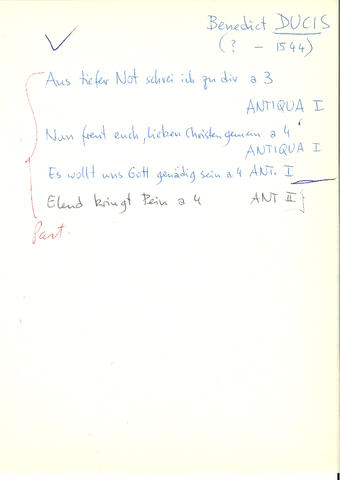 Benedict DUCIS
(? - 1544)
Aus tiefer Not schrei ich zu dir a 3
ANTIQUA I
Nun freut euch, lieben Christen gemein a 4
ANTIQUA I
Es wollt uns Gott genädig sein a 4 ANT. I
Elend bringt Pein a 4 ANT II
Part.